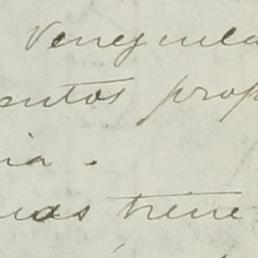 Venezuela
entos prop
ia.
uas tiene